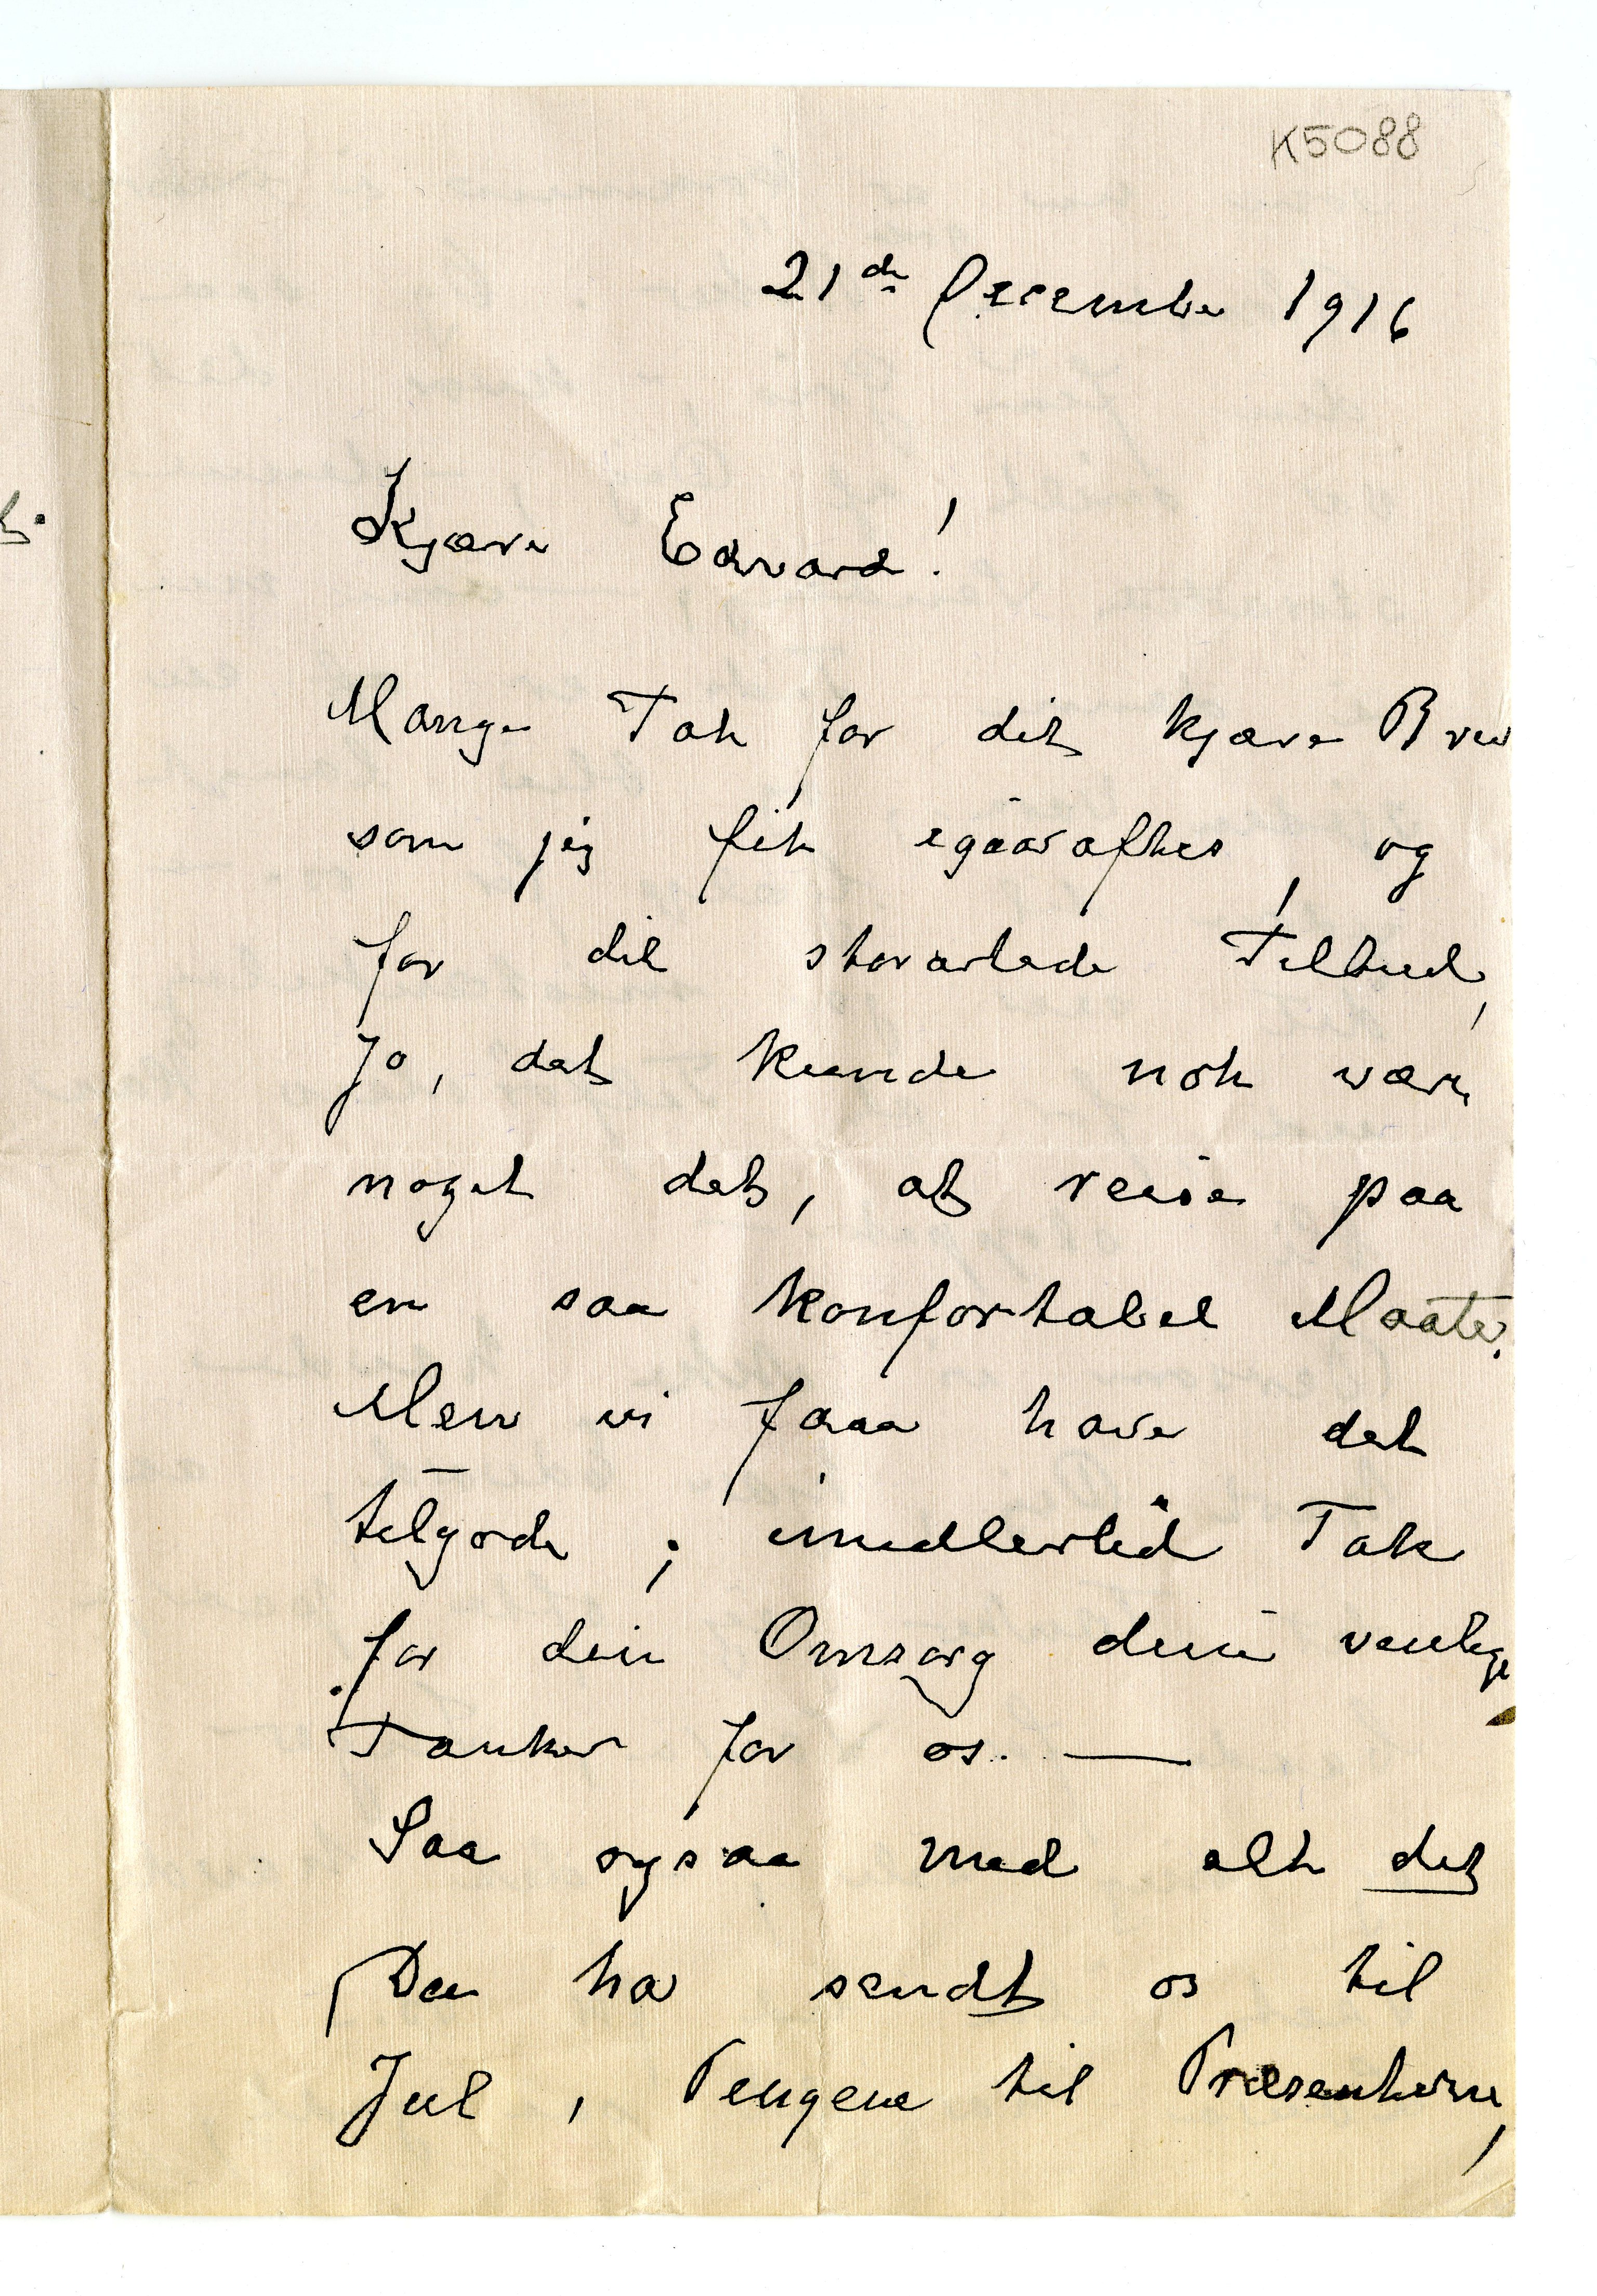 K5088
21de December 1916
Kjære Edvard!
Mange Tak for dit kjære Brev
som jeg fik igaaraftes, og
for dit storartede Tilbud,
Jo, det kunde nok være
noget det, at reise paa
en saa konfortabel Maate.
Men vi faaa have det
tilgode; imidlertid Tak
for din Omsorg dine venlige
Tanker for os. —
Saa ogsaa med alt det
Du har sendt os til
Jul, Pengene til Præsenterne,